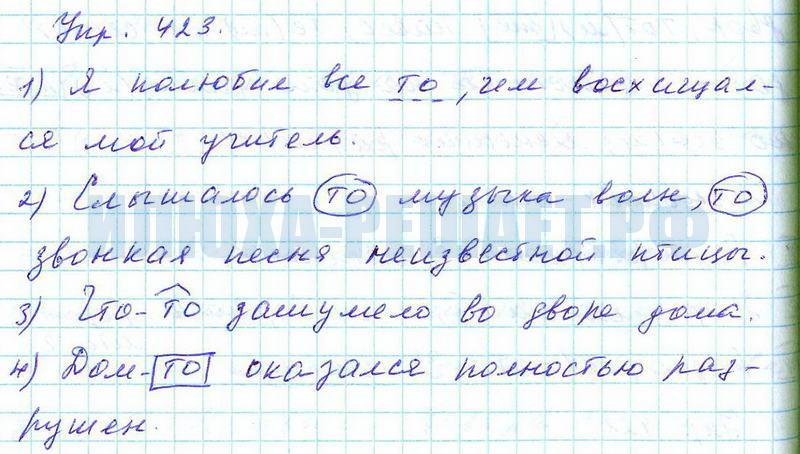 Упр. 423.
1) Я полюбил все то, чем восхищал-
ся мой учитель.
2) Слышалось то музыка волн, то
ИЛЮХА-РЕШАЕТ.РФ
звонкая песня неизвестной птицы.
3) Что-то зашумело во дворе дома.
4) Дом-то оказался полностью раз-
рушен.